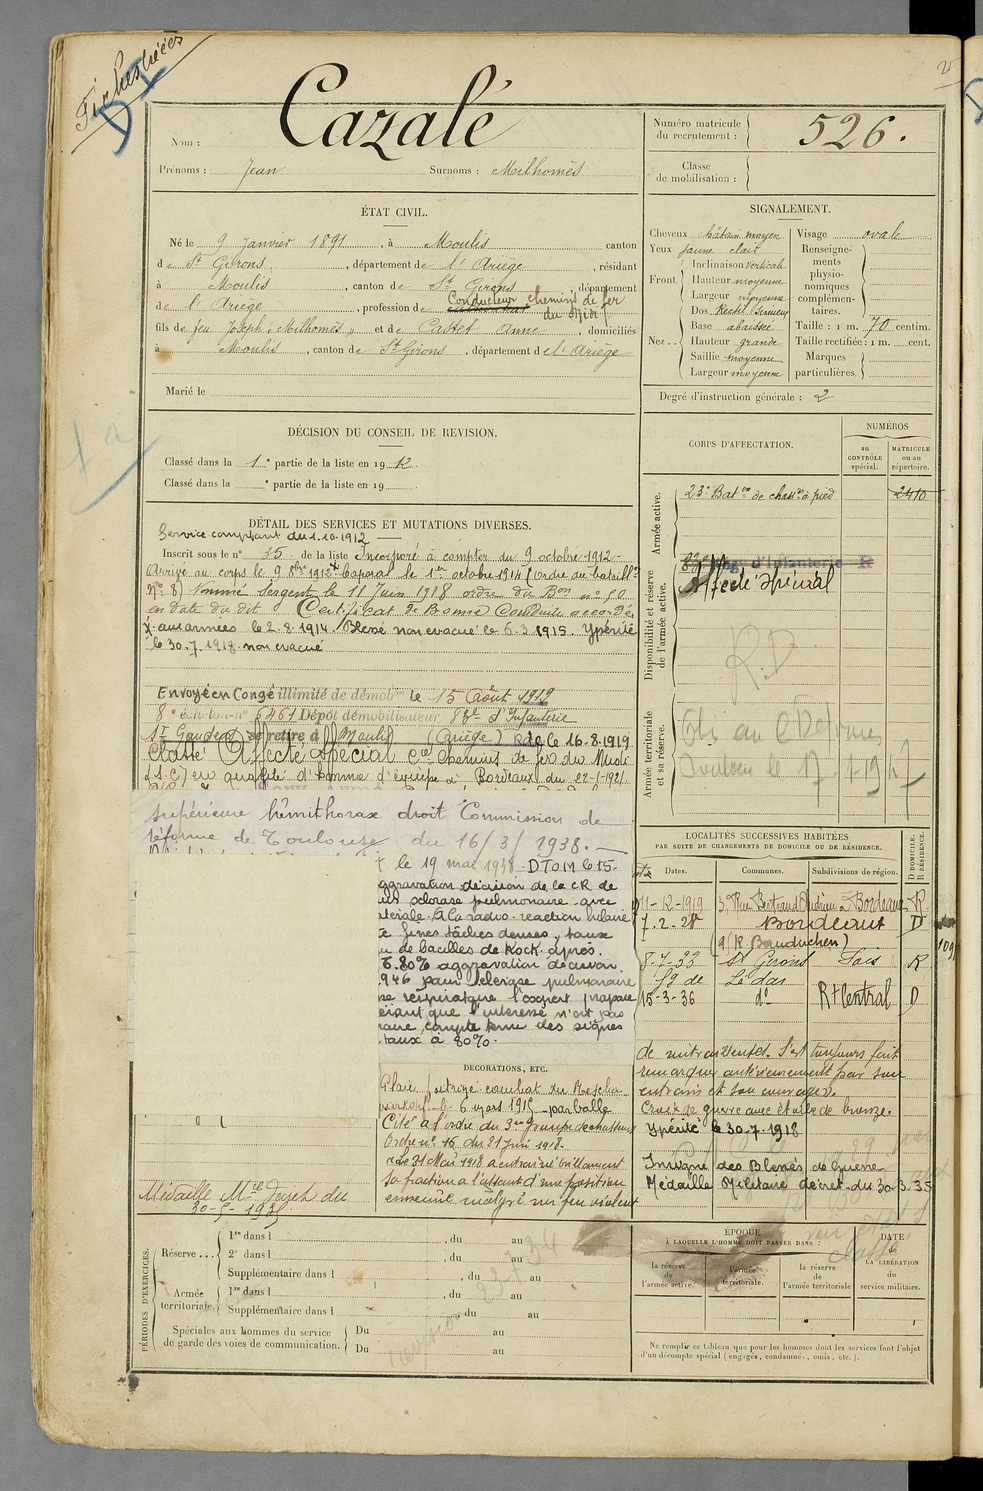 Fiches créées
Cazalé
Nom :
Prénoms : Jean Surnoms : Milhomès
Numéro matricule du recrutement : 526.
Classe de mobilisation :
ÉTAT CIVIL.
Né le 9 Janvier 1891, à Moulis canton
de St Girons, département de l'Ariège, résidant
à Moulis, canton de St Girons, département
de l'Ariège, profession de Conducteur chemins de fer
du Midi
fils de feu Joseph "Milhomes" et de Castet Anne, domiciliés
à Moulis, canton de St Girons, département de l'Ariège
Marié le
SIGNALEMENT.
Cheveux châtain moyen
Yeux jaune clair
Front Inclinaison verticale
Hauteur moyenne
Largeur moyenne
Nez Dos Rectil. Sinueux
Base abaissée
Hauteur grande
Saillie moyenne
Largeur moyenne
Visage ovale
Renseignements physionomiques complémentaires.
Taille : 1 m. 70 centim.
Taille rectifiée : 1 m. cent.
Marques particulières.
Degré d'instruction générale : 2
DÉCISION DU CONSEIL DE REVISION.
Classé dans la 1e partie de la liste en 1912
Classé dans la e partie de la liste en 19
CORPS D'AFFECTATION.
NUMÉROS
au CONTRÔLE spécial.
MATRICULE ou au répertoire.
Armée active.
23e Baton de chassrs à pied 2410
Disponibilité et réserve de l'armée active.
83e Rég. d'Infanterie R
Affecté Spécial
R.D
Armée territoriale et sa réserve.
Toulouse le 17-1-1947
DÉTAIL DES SERVICES ET MUTATIONS DIVERSES.
Service comptant du 1.10.1912
Inscrit sous le n° 35 de la liste Incorporé à compter du 9 octobre 1912-
Arrivé au corps le 9 8bre 1912 x Caporal le 1er octobre 1914 (ordre du bataillon
n° 8) Nommé Sergent le 11 Juin 1918 ordre du Bon n° 90
en date du dit Certificat de Bonne Conduite accordé.
x aux armées le 2.8.1914. Blessé non évacué le 6.3.1915. Ypérité
le 30.7.1918. non évacué
Envoyé en Congé illimité de démobon le 15 Août 1919
8e échelon n° 6461 Dépôt démobilisateur 83e d'Infanterie
St Gaudens se retire à Moulis (Ariège) Rdc le 16.8.1919
Classé Affecté Spécial Cie Chemins de fer du Midi
(S.C) en qualité d'homme d'équipe à Bordeaux du 22-1-1921
supérieure hémithorax droit Commission de
réforme de Toulouse du 16/3/1938.
le 19 mai 1938 DTOIM 615.
aggravation décision de la CR de
sclérose pulmonaire avec
A la radio. réaction hilaire
fines tâches denses, taux
de bacilles de Kock. après.
80% aggravation décision
1946 pour sclérose pulmonaire
respiratoire l'expert propose
que l'intéressé n'est pas
compte tenu des signes
taux à 80%.
LOCALITÉS SUCCESSIVES HABITÉES
PAR SUITE DE CHANGEMENTS DE DOMICILE OU DE RÉSIDENCE.
Dates. Communes. Subdivisions de région. D DOMICILE. R RÉSIDENCE.
11-12-1919 3, Rue Bertrand Andrieu à Bordeaux R
7.2.21 Bordeaux D
(9 R Bauduchen)
8-7-33 St Girons Foix R
fg de Lédar
15-3-36 do R+Central D
DÉCORATIONS, ETC.
Plaie poitrine combat du Reschackerkopf le 6 mars 1915 par balle
Cité à l'ordre du 3me groupe de chasseurs
Ordre n° 16 du 21 Juin 1918.
"Le 31 Mai 1918 a entraîné brillamment
sa fraction à l'assaut d'une position
ennemie malgré un feu violent
de mitrailleuses. S'est toujours fait
remarquer antérieurement par son
entrain et son courage".
Croix de guerre avec étoile de bronze.
Ypérité le 30.7.1918
Insigne des Blessés de Guerre
Médaille Militaire décret du 30.3.35
Médaille Mre Décret du
30-5-1935
PÉRIODES D'EXERCICES.
Réserve 1re dans l , du au
2e dans l , du au
Supplémentaire dans l , du au
Armée territoriale. 1re dans l , du au
Supplémentaire dans l du au
Spéciales aux hommes du service de garde des voies de communication. Du au
Du au
ÉPOQUE
À LAQUELLE L'HOMME DOIT PASSER DANS :
la réserve de l'armée active.
l'armée territoriale.
la réserve de l'armée territoriale
DATE de LA LIBÉRATION du service militaire.
Ne remplir ce tableau que pour les hommes dont les services font l'objet
d'un décompte spécial (engagés, condamnés, omis, etc.).